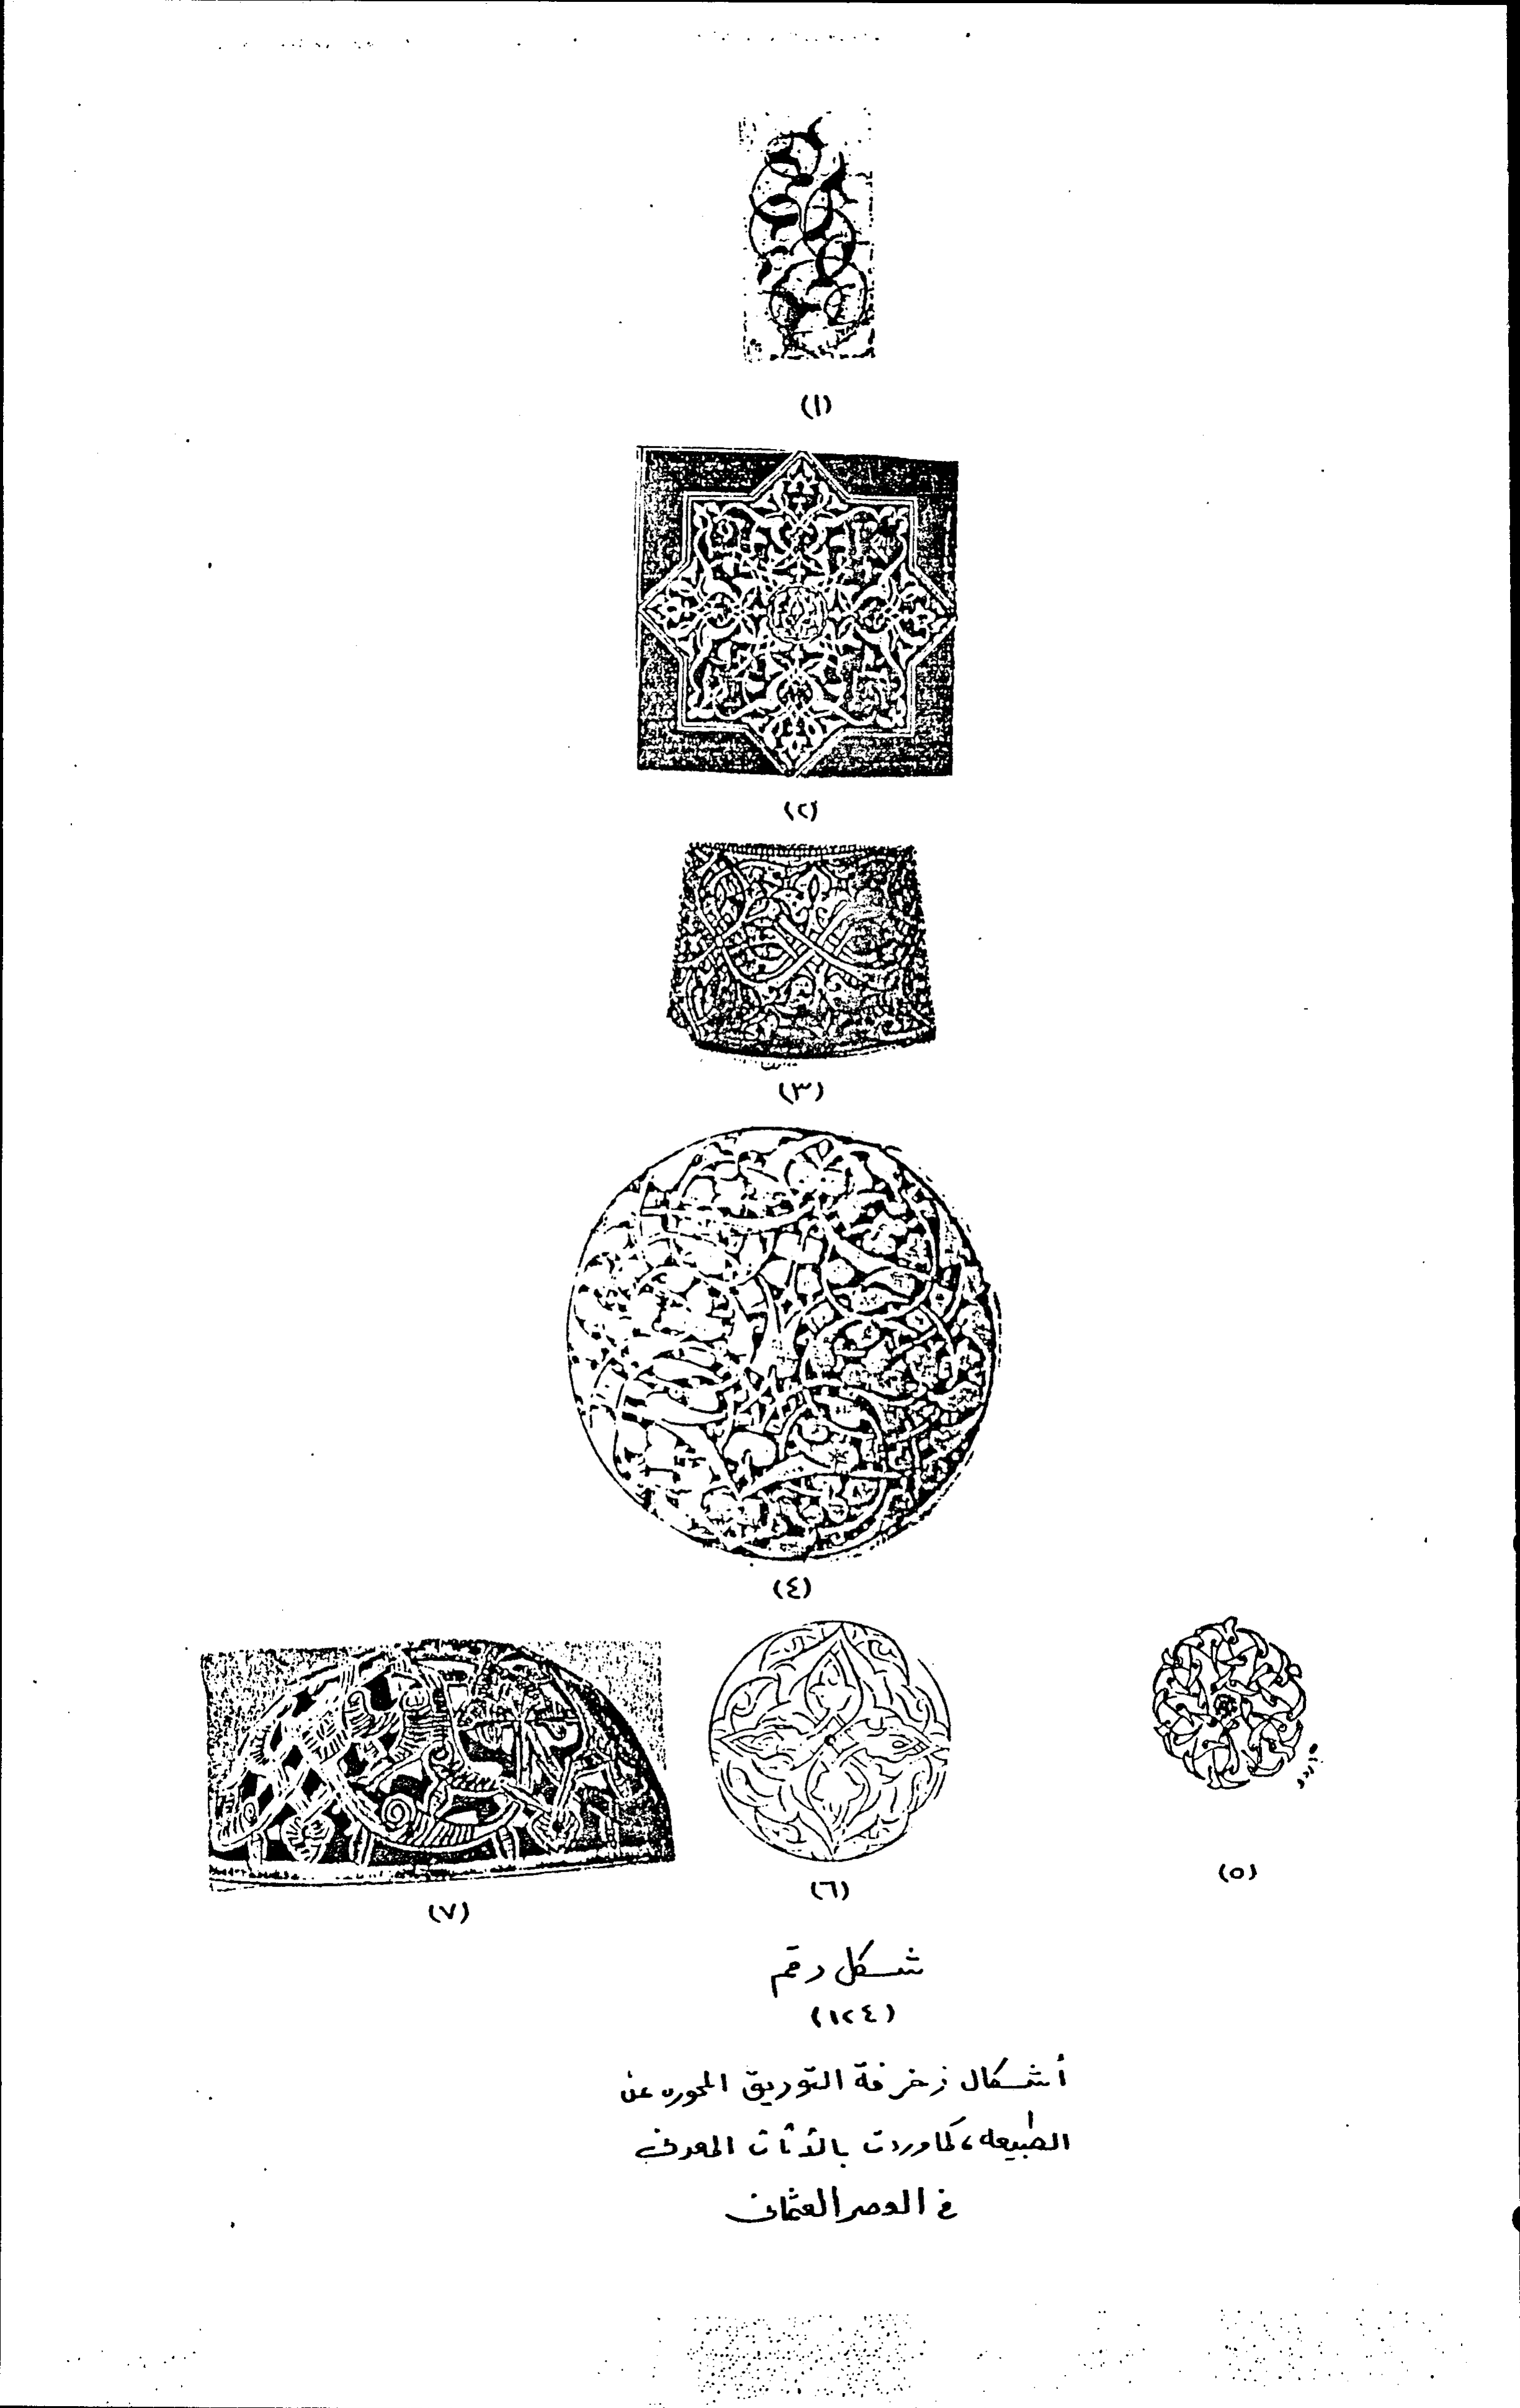 (١)
(٢)
(٣)
(٤)
(٥)
(٦)
(٧)
شكل رقم
(١٢٤)
أشكال زخرفة التوريق المحوره عن
الطبيعه، كما وردت بالأثاث المعدنى
فى العصر العثمانى